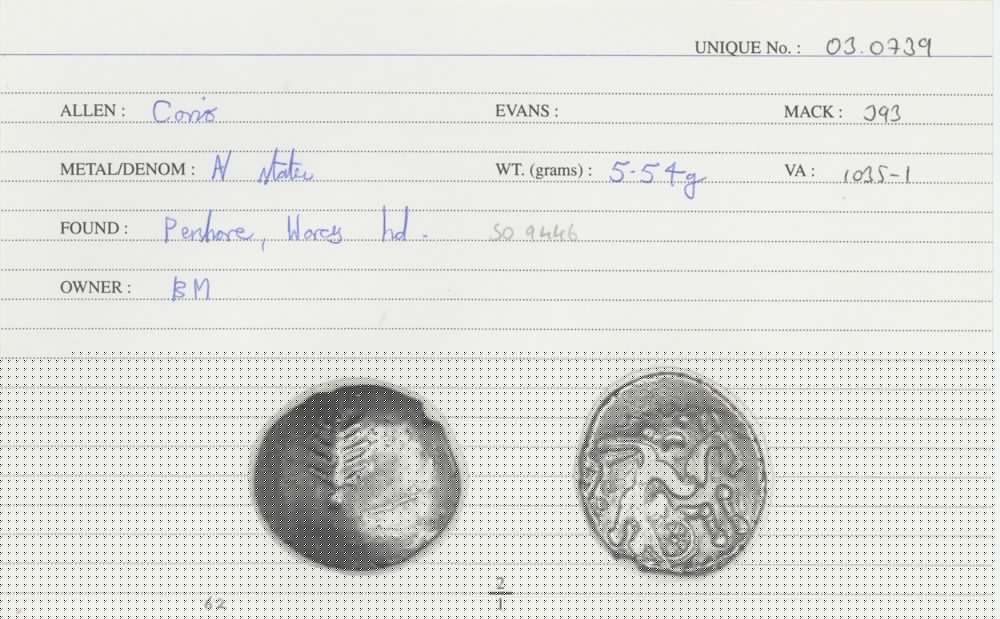 UNIQUE No. : 03.0739
ALLEN : Corio EVANS : MACK : 393
METAL/DENOM : AV stater WT. (grams) : 5.54g VA : 1035-1
FOUND : Pershore, Worcs hd. SO 9446
OWNER : BM
62
2
1